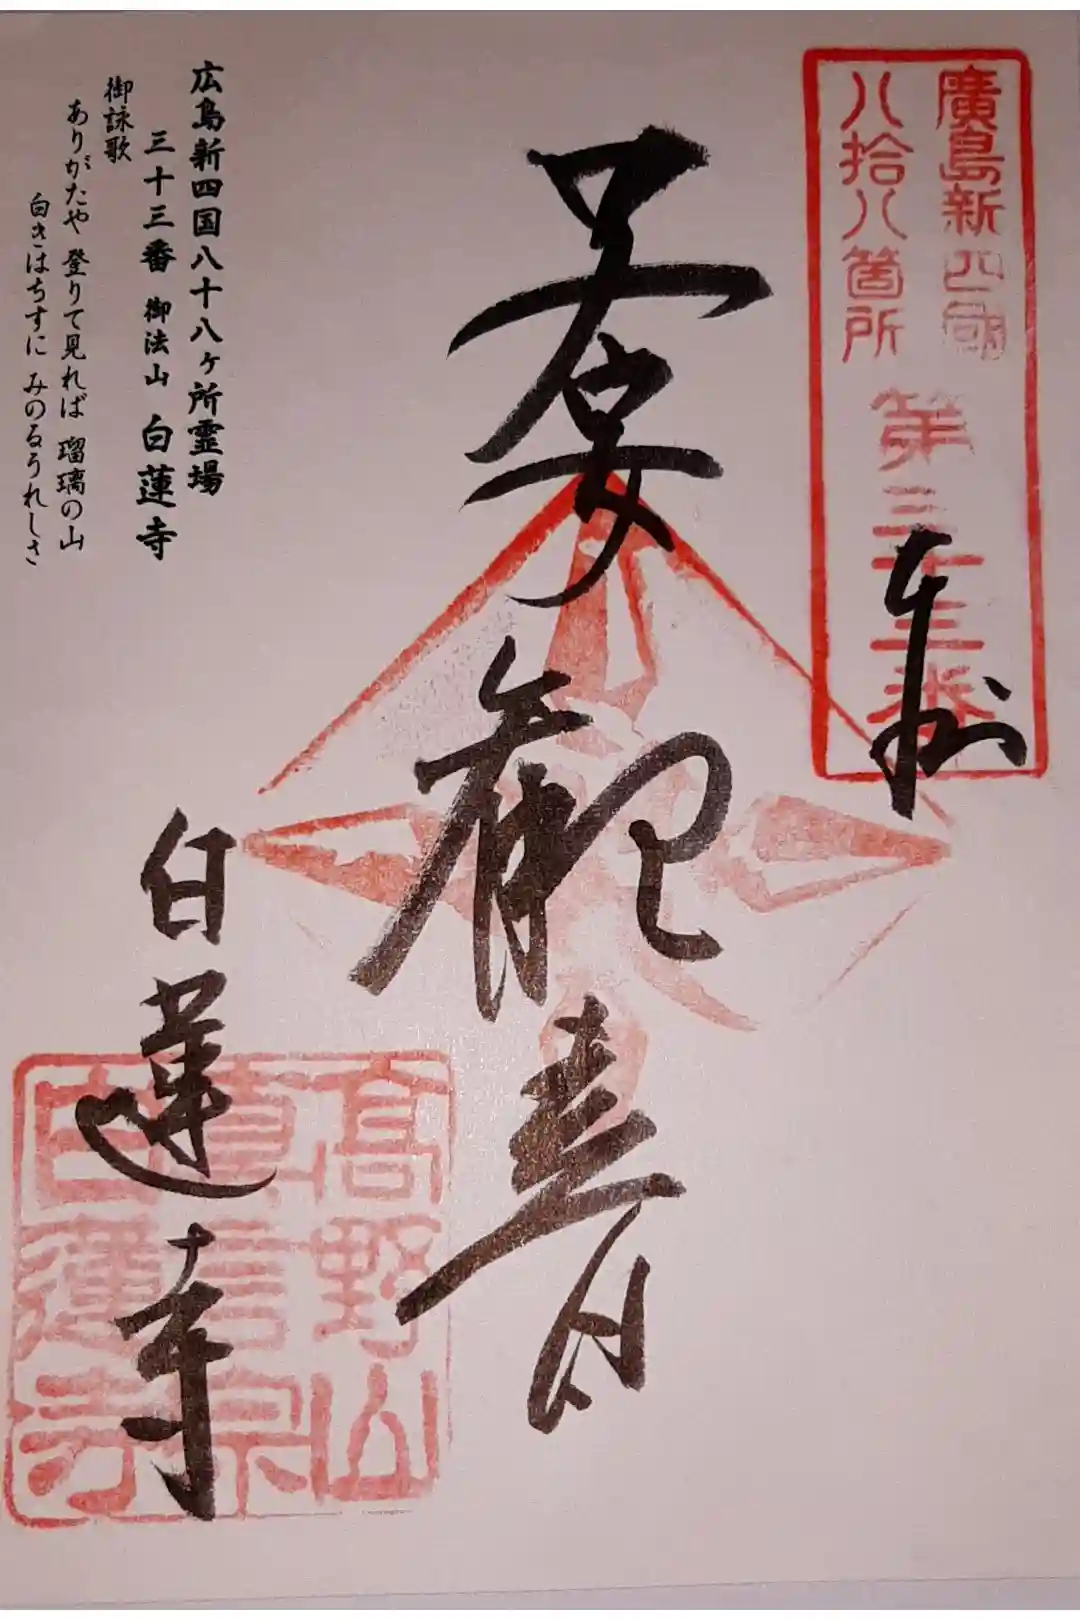 廣島新四國
八拾八箇所
第三十三番
奉拝
子安
観音
白蓮寺
高野山
真言宗
白蓮寺
広島新四国八十八ヶ所霊場
三十三番 御法山 白蓮寺
御詠歌
ありがたや 登りて見れば 瑠璃の山
白きはちすに みのるうれしさ